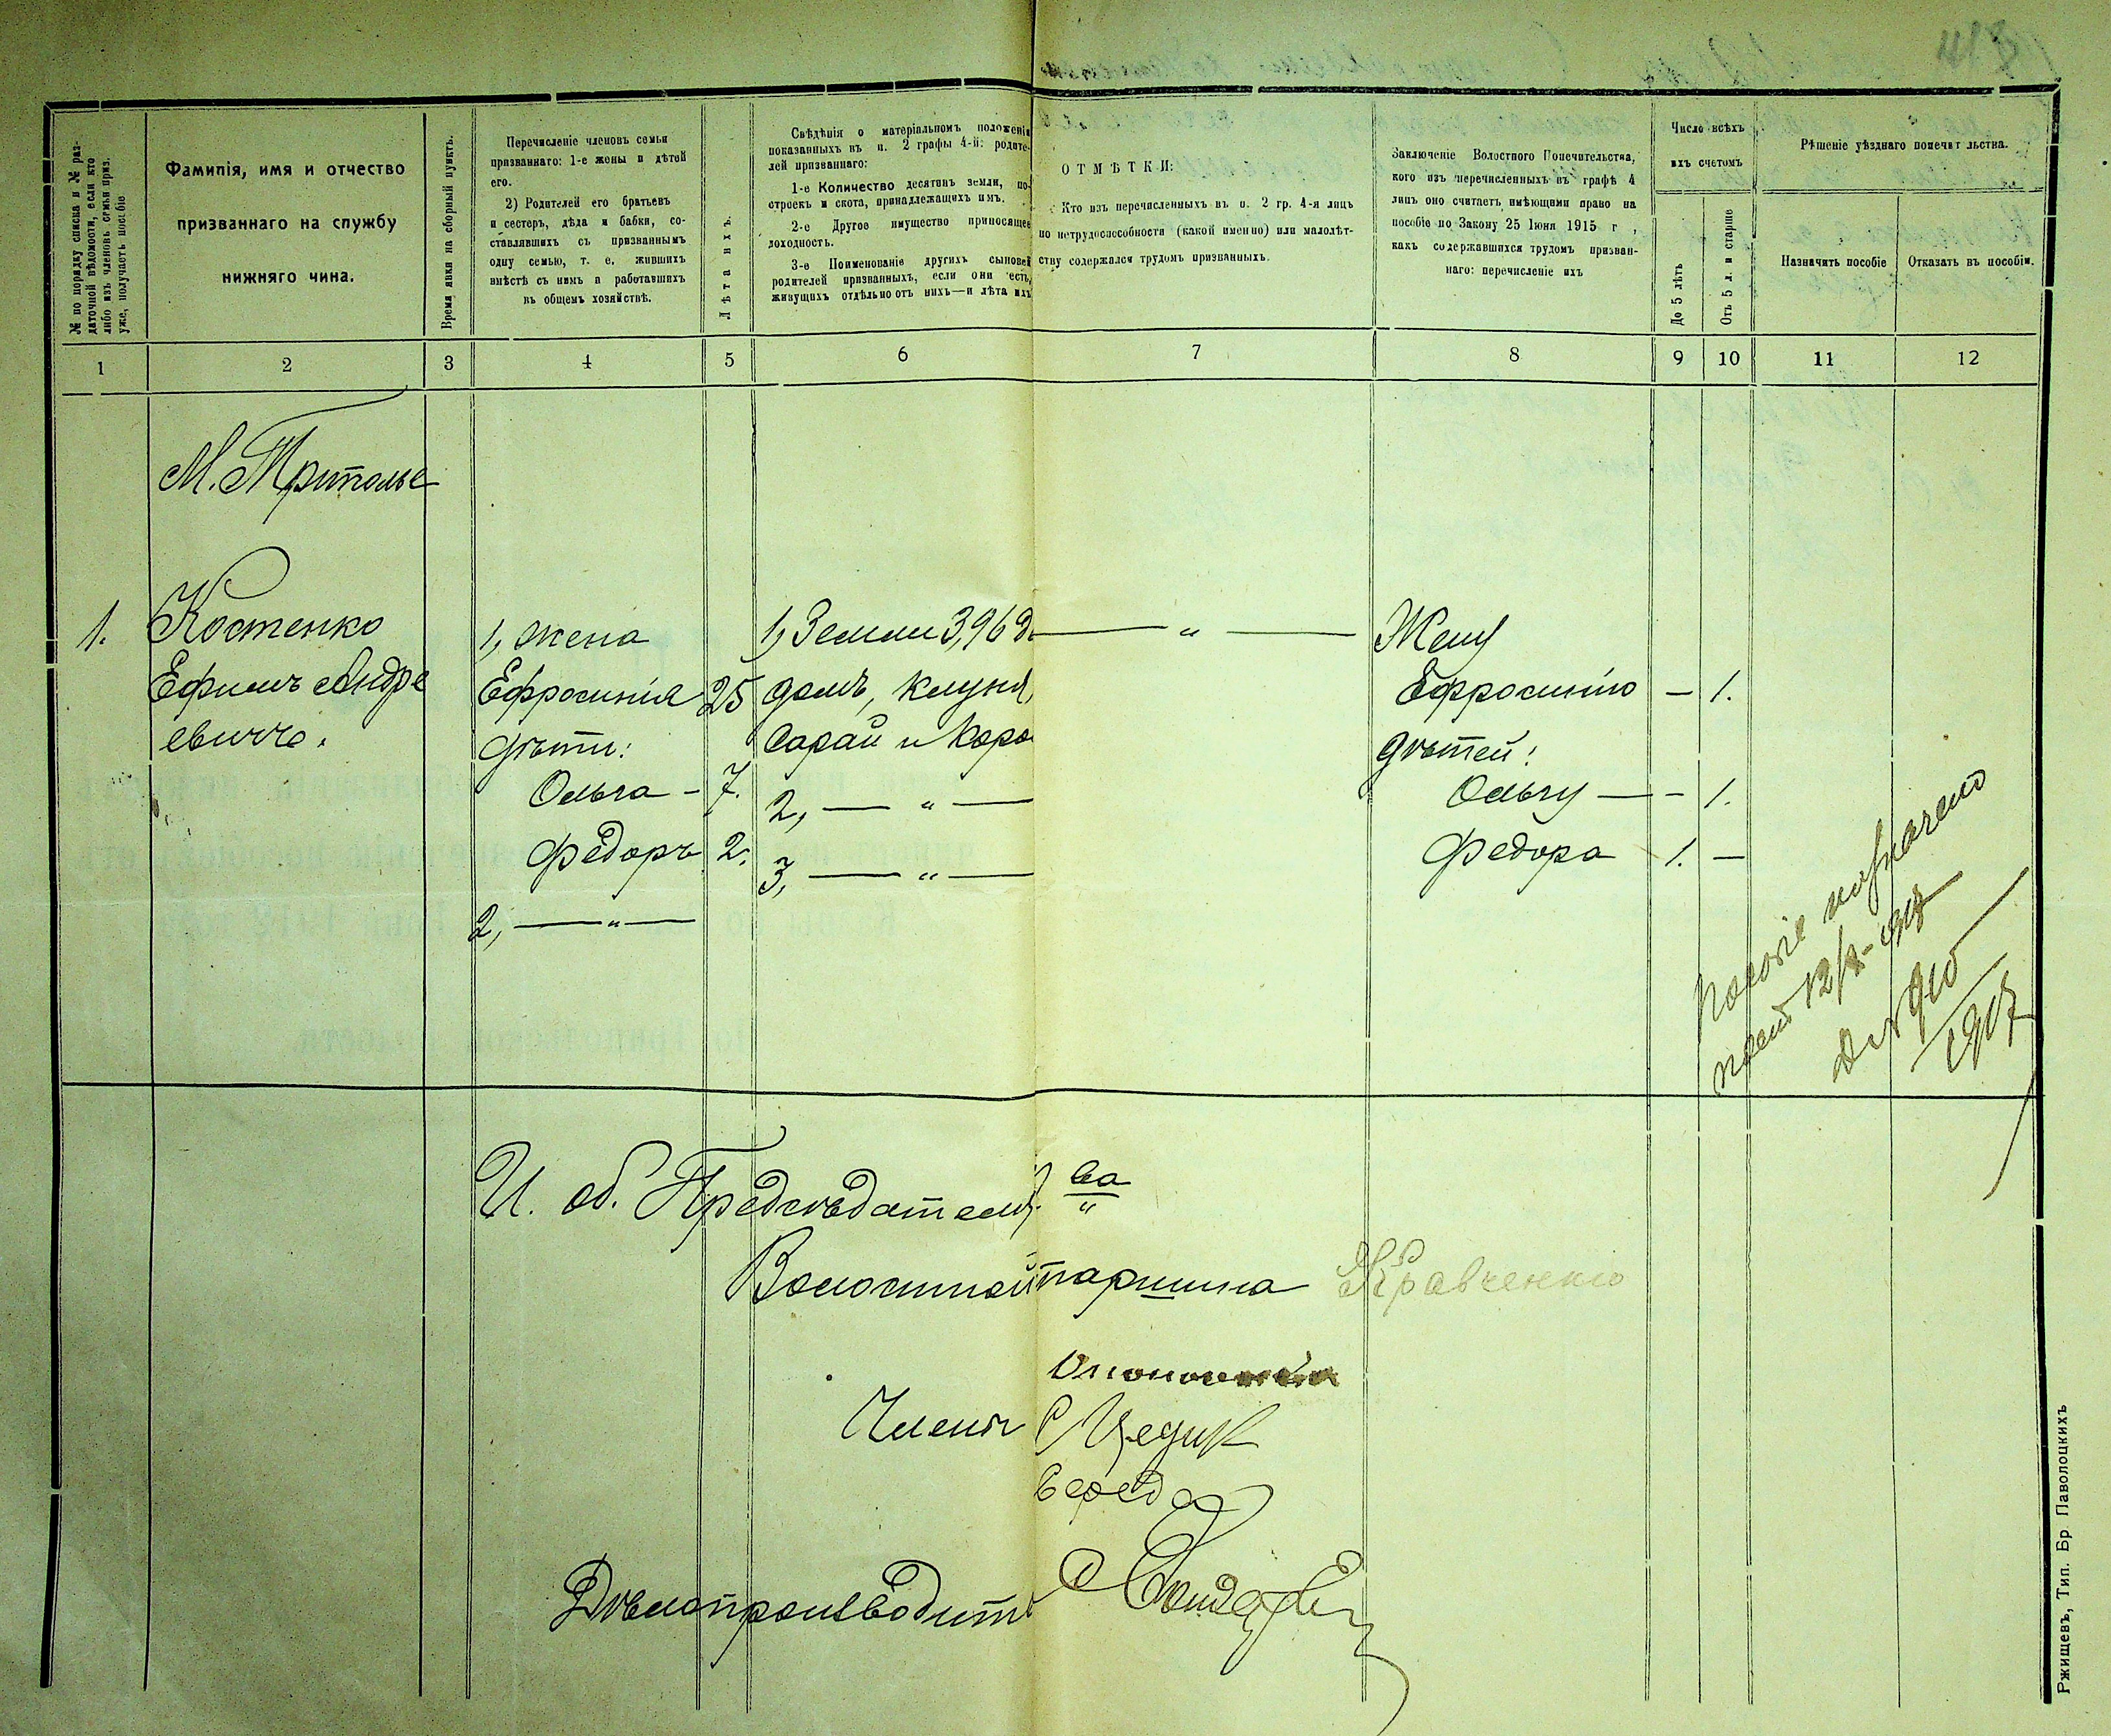 № по порядку списка и № раз-
даточной вѣдомости, если кто
либо изъ членовъ семьи приз.
уже, получаетъ пособіе
Фамилія, имя и отчество
призваннаго на службу
нижняго чина.
Время явки на сборный пунктъ.
Перечисленіе членовъ семьи
призваннаго: 1-е жены и дѣтей
его.
2) Родителей его братьевъ
и сестеръ, дѣда и бабки, со-
ставлявшихъ съ призваннымъ
одну семью, т. е. жившихъ
вмѣстѣ съ нимъ и работавшихъ
въ общемъ хозяйствѣ.
Лѣта ихъ.
Свѣдѣнія о матеріальномъ положеніи
показанныхъ въ п. 2 графы 4-й: родите-
лей призваннаго:
1-е Количество десятинъ земли, по-
строекъ и скота, принадлежащихъ имъ.
2-е Другое имущество приносящее
доходность.
3-е Поименованіе другихъ сыновей
родителей призванныхъ, если они есть,
живущихъ отдѣльно отъ нихъ—и лѣта ихъ
ОТМѢТКИ:
Кто изъ перечисленныхъ въ п. 2 гр. 4-я лицъ
по нетрудоспособности (какой именно) или малолѣт-
ству содержался трудомъ призванныхъ.
Заключеніе Волостного Попечительства,
кого изъ перечисленныхъ въ графѣ 4
лицъ оно считаетъ имѣющими право на
пособіе по Закону 25 Іюня 1915 г ,
какъ содержавшихся трудомъ призван-
наго: перечисленіе ихъ
Число всѣхъ
ихъ счетомъ
До 5 лѣтъ
Отъ 5 л. и старше
Рѣшеніе уѣзднаго попечит льства.
Назначить пособіе
Отказать въ пособіи.
1 2 3 4 5 6 7 8 9 10 11 12
М. Триполье
1. Костенко 1, жена 1, Земли 3,96 д. — " — Жену
Ефимъ Андре Ефросинія 25 домъ, клуня, Ефросинію — 1.
евичъ. дѣти: сарай и коро дѣтей:
Ольга - 7. 2, — " — Ольгу — - 1.
Федоръ 2. 3, — " — Федора 1. —
2, — " —
Пособіе назначено
И. об. Предсѣдателя ва
"
Волостной таршина Кравченко
Члены
Середа
Дѣлопроизводит
Ржищевъ, Тип. Бр Паволоцкихъ